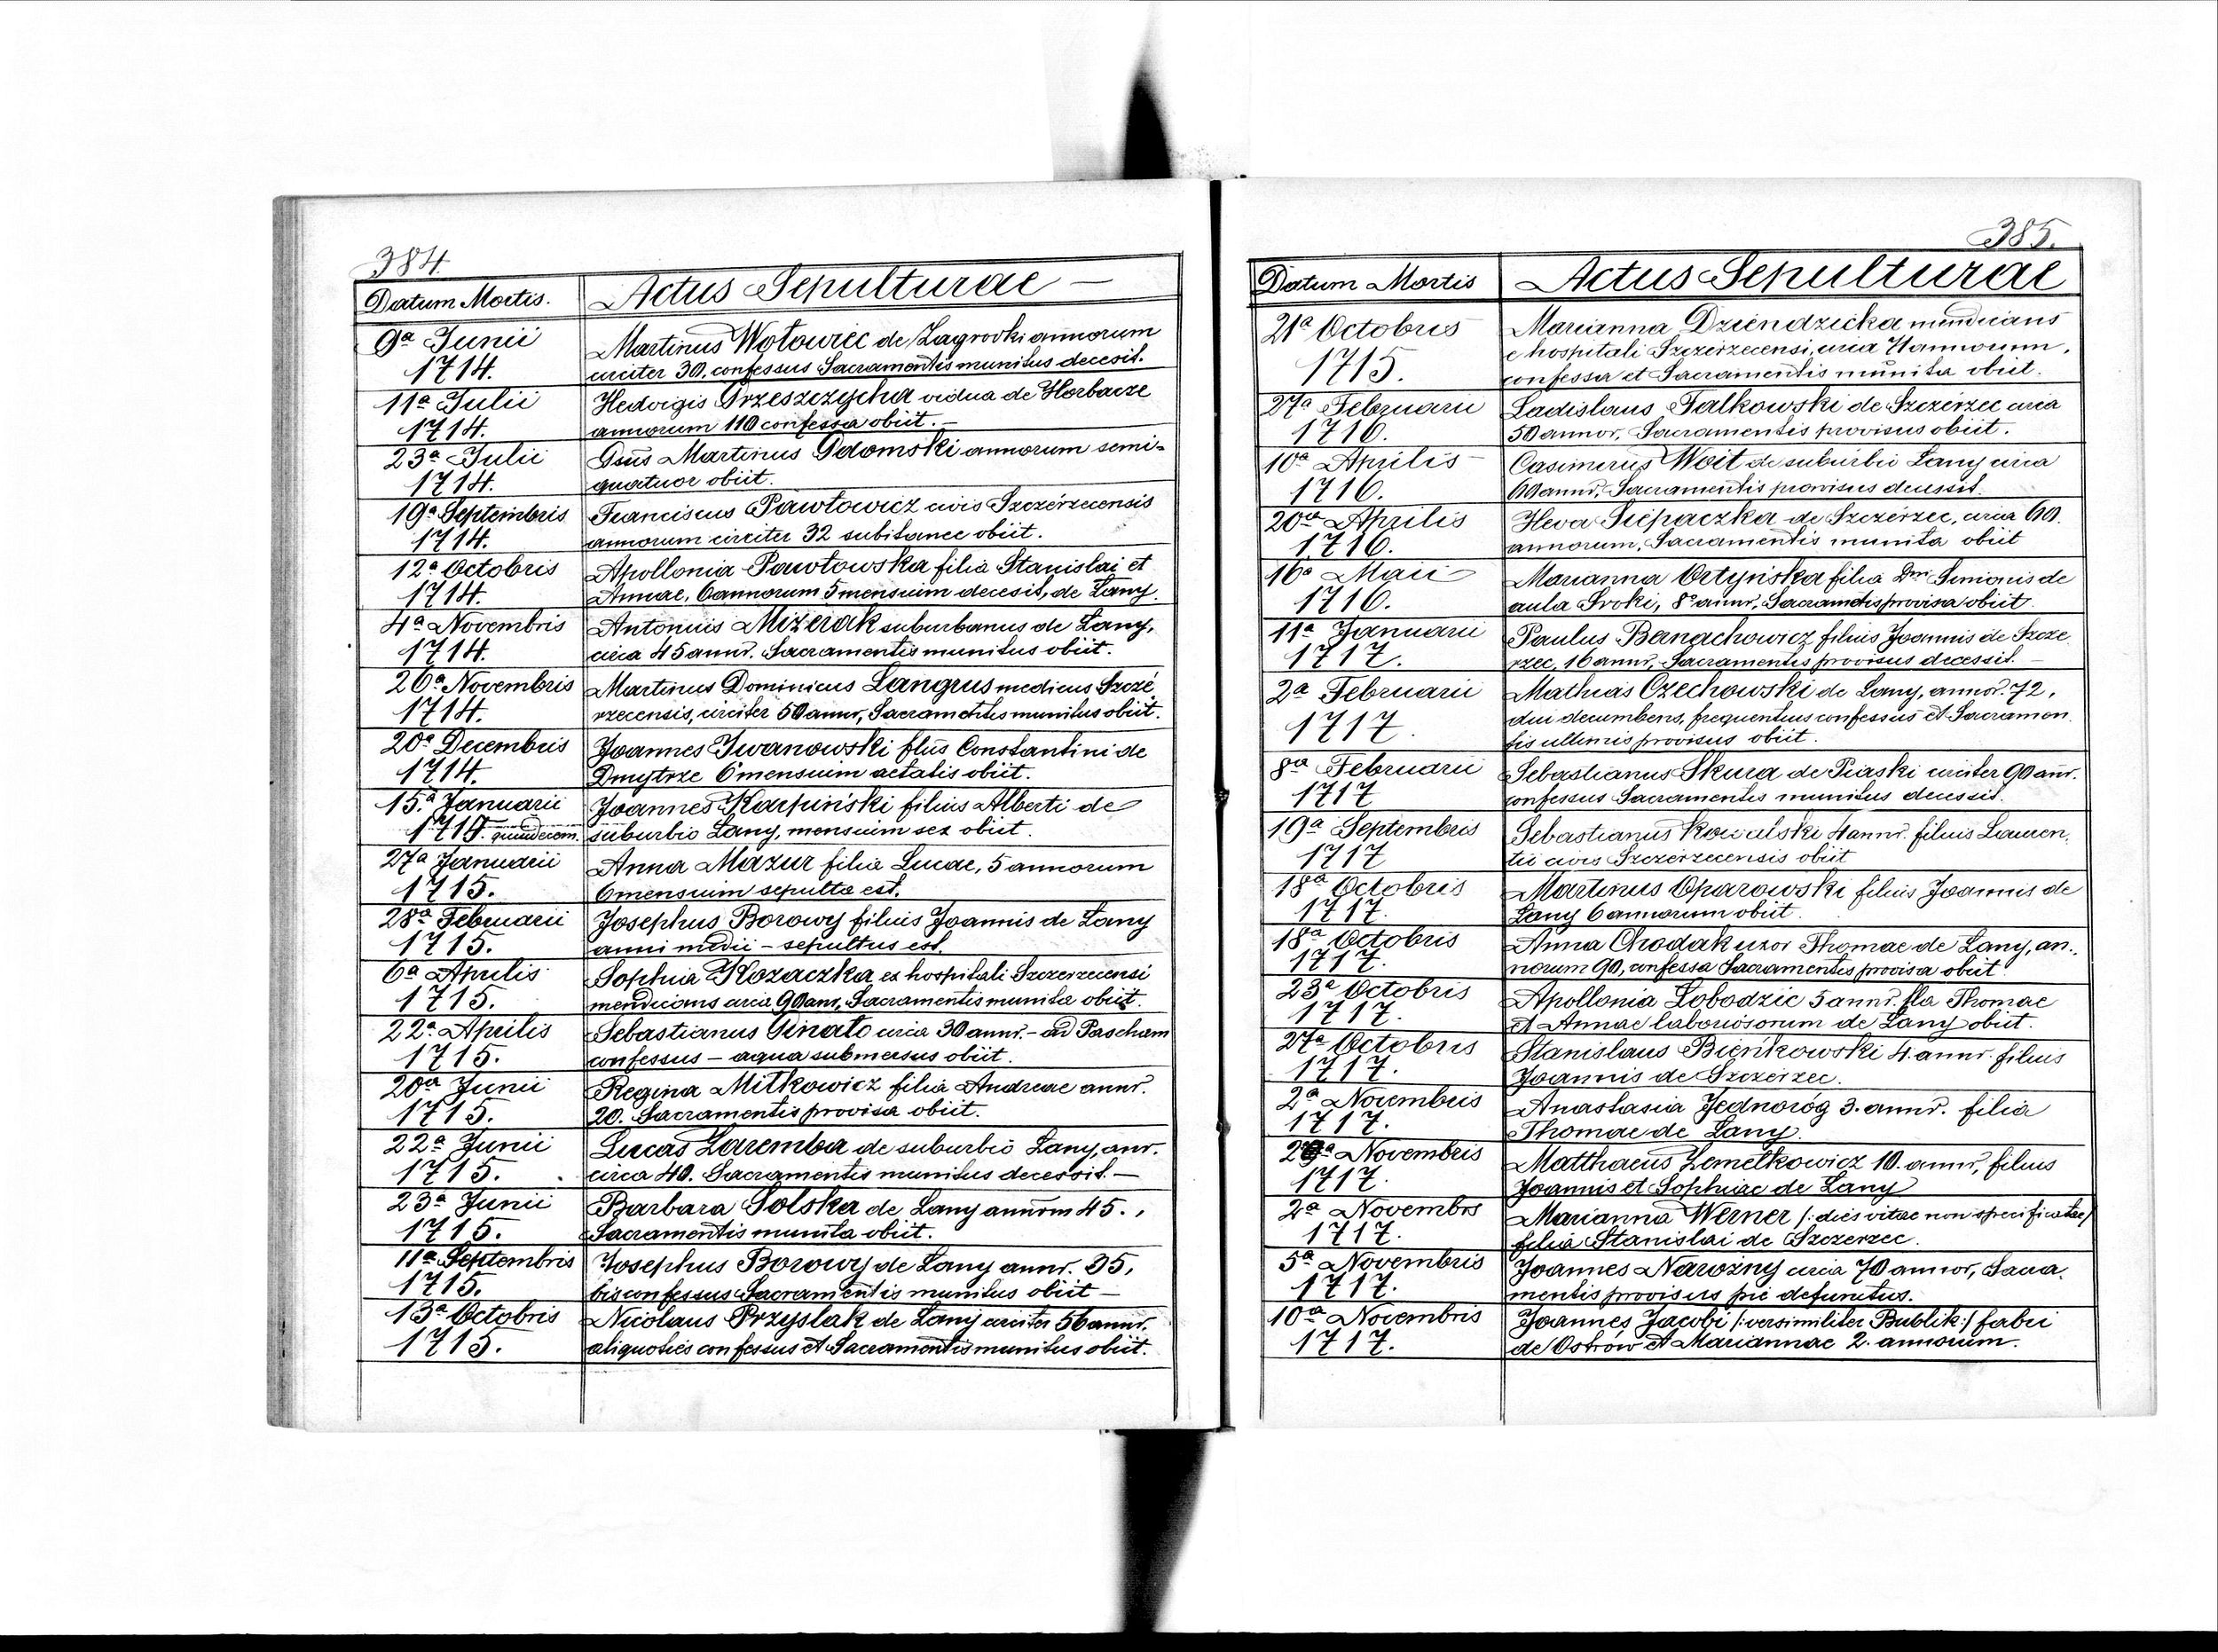 384.
Datum Mortis. Actus Sepulturae —
9a Junii Martinus Wołowiec de Zagrodki annorum
1714. circiter 30, confessus Sacramentis munitus decesit.
11a Julii Hedvigis Orzeszczycha vidua de Horbacze
1714. annorum 110 confessa obiit. —
23a Julii Gsus Martinus Gdomski annorum semi-
1714. quatuor obiit.
19a Septembris Franciscus Pawłowicz civis Szczérzecensis
1714. annorum circiter 32 subitanee obiit.
12a Octobris Apollonia Pawłowska filia Stanislai et
1714. Annae, 6 annorum 5 mensuim decesit, de Łany.
4a Novembris Antonius Mizerak suburbanus de Łany,
1714. circa 45 annor. Sacramentis munitus obiit.
26a Novembris Martinus Dominicus Langrus medicus Szczé
1714. rzecensis, circiter 50 annor, Sacramentis munitus obiit.
20a Decembris Joannes Iwanowski flus Constantini de
1714. Dmytrze 6 mensuim aetatis obiit.
15.a Januarii Joannes Karpiński filius Alberti de
1715. quindecem. suburbio Łany, mensuim sex obiit.
27a Januarii Anna Mazur filia Lucae, 5 annorum
1715. 6 mensuim sepulta est.
28a Februarii Josephus Borowy filius Joannis de Łany
1715. anni medii – sepultus est.
6a Aprilis Sophia Kozaczka ex hospitali Szczerzecensi
1715. mendicans circa 90 anr, Sacramentis munita obiit.
22a Aprilis Sebastianus Ginato circa 30 annr. – ad Pascham
1715. confessus – aqua submersus obiit.
20a Junii Regina Mitkowicz filia Andreae annr.
1715. 20. Sacramentis provisa obiit.
22a Junii Lucas Zaremba de suburbio Łany, anr.
1715. circa 40. Sacramentis munitus decessit. —
23a Junii Barbara Solska de Łany annorm 45.,
1715. Sacramentis munita obiit.
11a Septembris Josephus Borowy de Łany annr. 35,
1715. bis confessus Sacramentis munitus obiit —
13a Octobris Nicolaus Przyslak de Łany circiter 56 annr.
1715. aliquoties confessus et Sacramentis munitus obiit.
385.
Datum Mortis Actus Sepulturae
21a Octobris Marianna Dziendzicka mendicans
1715. e hospitali Szczérzecensi, circa 71 annorum,
confessa et Sacramentis munita obiit.
27a Februarii Ladislaus Falkowski de Szczérzec circa
1716. 50 annor, Sacramentis provisus obiit.
10a Aprilis Casimirus Woit de suburbii Łany circa
1716. 60 annr, Sacramentis provisus decessit.
20a Aprilis Heva Siepaczka de Szczérzec, circa 60.
1716. annorum, Sacramentis munita obiit
16a Maii Marianna Ortyńska filia Dni Simonis de
1716. aula Sroki, 8o annr, Sacramtis provisa obiit.
11a Januarii Paulus Bernachowicz filius Joannis de Szcze
1717. rzec, 16 annr, Sacramentis provisus decessit. —
2a Februarii Mathias Czechowski de Łany, annor. 72,
1717. diu decumbens, frequentius confessus et Sacramen
tis ultimis provisus obiit.
8a Februarii Sebastianus Skura de Piaski circiter 90 anr.
1717 confessus Sacramentis munitus decessit.
19a Septembris Sebastianus Kowalski 4 annr. filius Lauren,
1717 tii civis Szczérzecensis obiit
18a Octobris Martinus Oparowski filius Joannis de
1717. Łany 6 annorum obiit.
18a Octobris Anna Chodak uxor Thomae de Łany, an,
1717. norum 90, confessa Sacramentis provisa obiit.
23a Octobris Apollonia Łobodzic 5 annr. fla Thomae
1717. et Annae laboriosorum de Łany obiit.
27a Octobris Stanislaus Bieńkowski 4. annr. filius
1717. Joannis de Szczérzec.
2a Novembris Anastasia Jednoróg 3. annr. filia
1717. Thomae de Łany.
29a Novembris Matthaeus Zemełkowicz 10. annr, filius
1717. Joannis et Sophiae de Łany
2a Novembrs Marianna Werner /: dies vitae non specificatae/
1717. filia Stanislai de Szczerzec.
5a Novembris Joannes Narożny circa 70 annor, Sacra,
1717. mentis provisus pie defunctus.
10a Novembris Joannes Jacobi /: versimiliter Bublik :/ fabri
1717. de Ostrów et Mariannae 2. annorum.